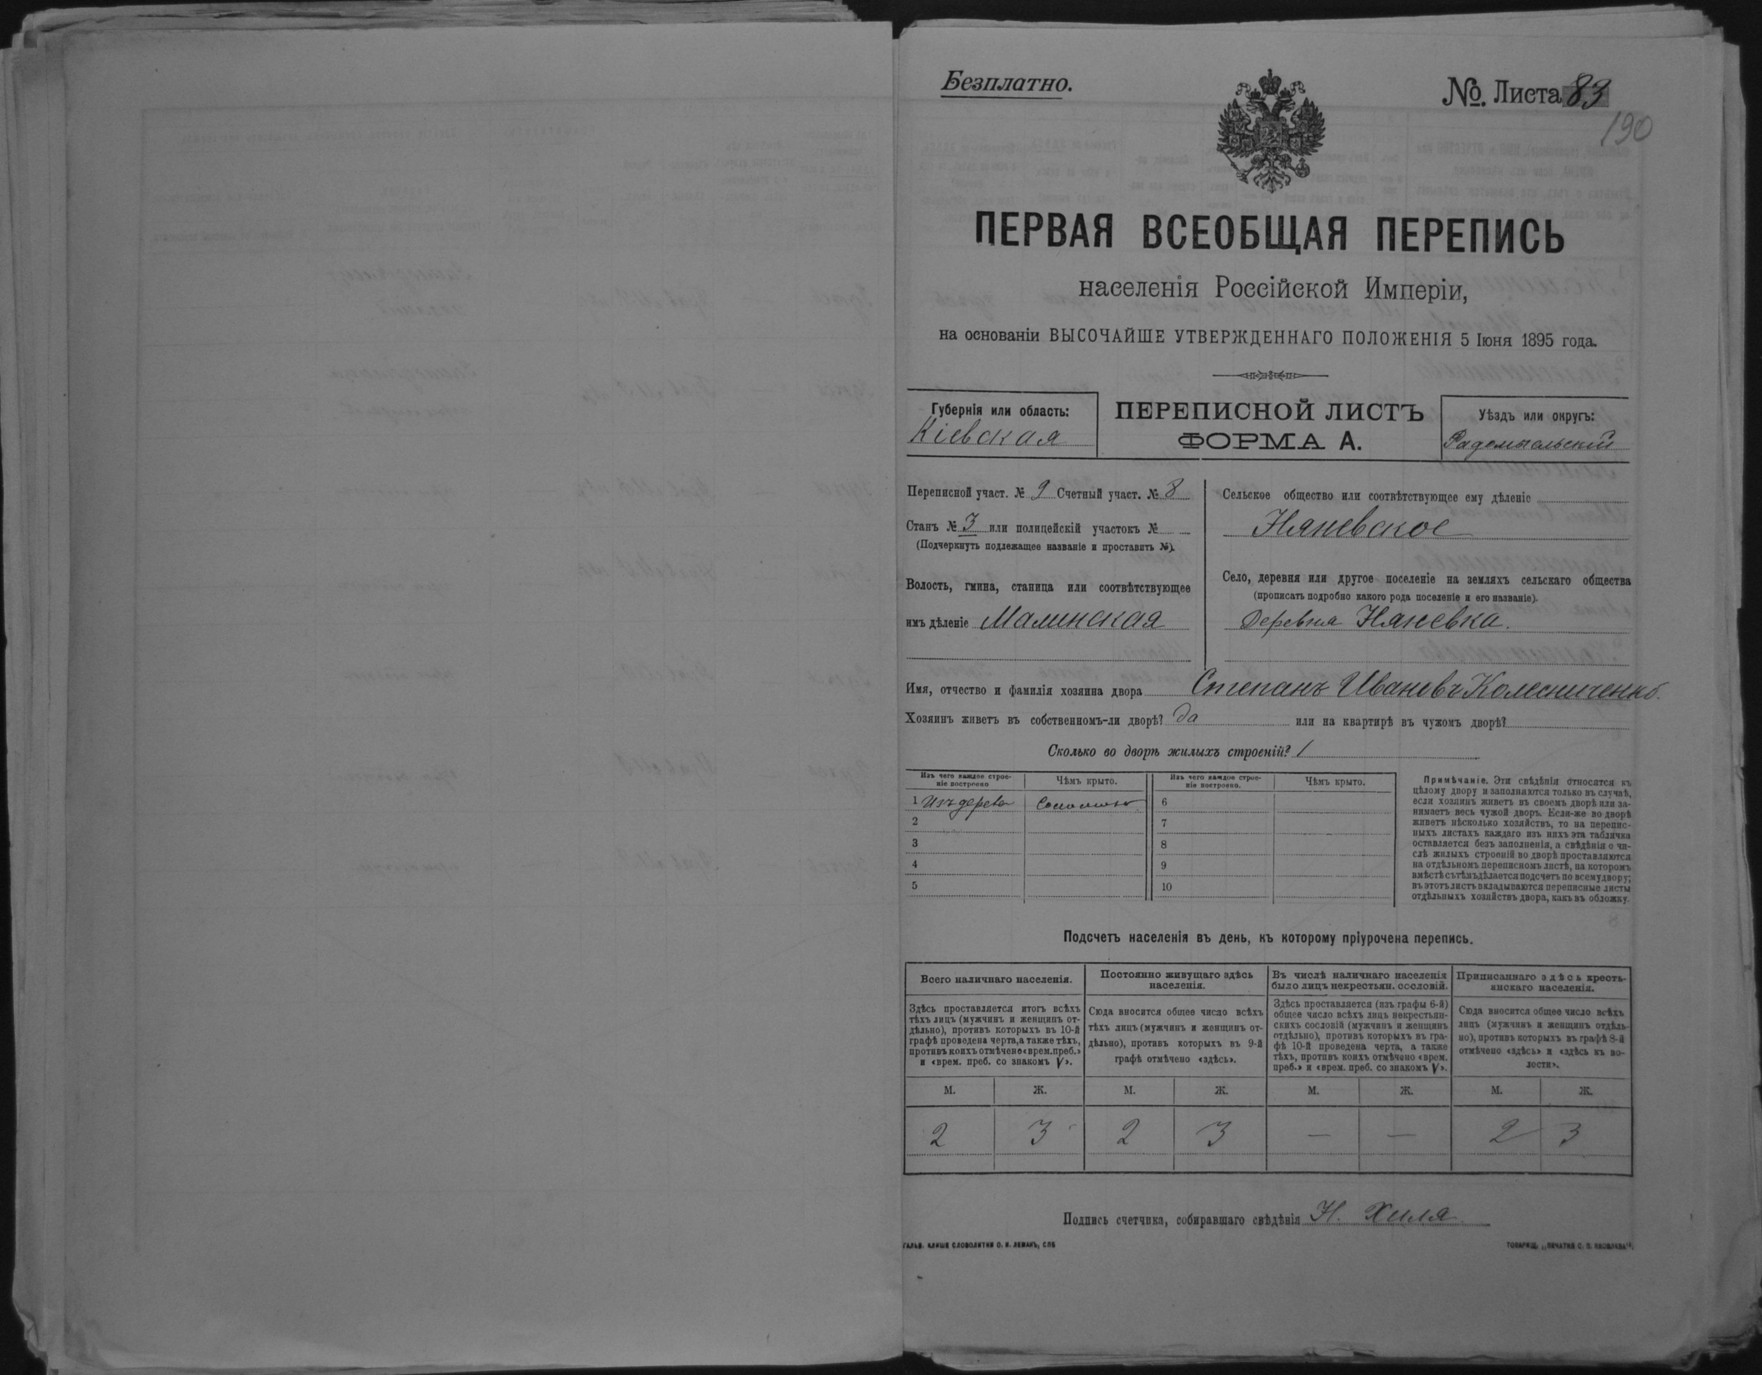 Безплатно.
№ Листа 83
190
ПЕРВАЯ ВСЕОБЩАЯ ПЕРЕПИСЬ
населенія Россійской Имперіи,
на основаніи ВЫСОЧАЙШЕ УТВЕРЖДЕННАГО ПОЛОЖЕНІЯ 5 Іюня 1895 года.
Губернія или область:
Кіевская
ПЕРЕПИСНОЙ ЛИСТЪ
ФОРМА А.
Уѣздъ или округъ:
Радомысльскій
Переписной участ. № 9 Счетный участ. № 8
Станъ № 3 или полицейскій участокъ № —
(Подчеркнуть подлежащее названіе и проставить №).
Волость, гмина, станица или соотвѣтствующее
имъ дѣленіе Малинская
Сельское общество или соотвѣтствующее ему дѣленіе
Няневское
Село, деревня или другое поселеніе на земляхъ сельскаго общества
(прописать подробно какого рода поселеніе и его названіе).
Деревня Няневка.
Имя, отчество и фамилія хозяина двора Степанъ Ивановъ Колесниченко.
Хозяинъ живетъ въ собственномъ-ли дворѣ? да или на квартирѣ въ чужомъ дворѣ?
Сколько во дворѣ жилыхъ строеній? 1
Изъ чего каждое строеніе построено
Чѣмъ крыто.
Изъ чего каждое строеніе построено.
Чѣмъ крыто.
1 Изъ дерева Соломою
2
3
4
5
6
7
8
9
10
Примѣчаніе. Эти свѣдѣнія относятся къ
цѣлому двору и заполняются только въ случаѣ,
если хозяинъ живетъ въ своемъ дворѣ или за-
нимаетъ весь чужой дворъ. Если-же во дворѣ
живетъ нѣсколько хозяйствъ, то на перепис-
ныхъ листахъ каждаго изъ нихъ эта табличка
оставляется безъ заполненія, а свѣдѣнія о чи-
слѣ жилыхъ строеній во дворѣ проставляются
на отдѣльномъ переписномъ листѣ, на которомъ
вмѣстѣ съ тѣмъ дѣлается подсчетъ по всему двору;
въ этотъ листъ вкладываются переписные листы
отдѣльныхъ хозяйствъ двора, какъ въ обложку.
Подсчетъ населенія въ день, къ которому пріурочена перепись.
Всего наличнаго населенія.
Здѣсь проставляется итогъ всѣхъ
тѣхъ лицъ (мужчинъ и женщинъ от-
дѣльно), противъ которыхъ въ 10-й
графѣ проведена черта, а также тѣхъ,
противъ коихъ отмѣчено «врем. преб.»
и «врем. преб. со знакомъ V».
Постоянно живущаго здѣсь
населенія.
Сюда вносится общее число всѣхъ
тѣхъ лицъ (мужчинъ и женщинъ от-
дѣльно), противъ которыхъ въ 9-й
графѣ отмѣчено «здѣсь».
Въ числѣ наличнаго населенія
было лицъ некрестьян. сословій.
Здѣсь проставляется (изъ графы 6-й)
общее число всѣхъ лицъ некрестьян-
скихъ сословій (мужчинъ и женщинъ
отдѣльно), противъ которыхъ въ гра-
фѣ 10-й проведена черта, а также
тѣхъ, противъ коихъ отмѣчено «врем.
преб.» и «врем. преб. со знакомъ V».
Приписаннаго здѣсь кресть-
янскаго населенія.
Сюда вносится общее число всѣхъ
лицъ (мужчинъ и женщинъ отдѣль-
но), противъ которыхъ въ графѣ 8-й
отмѣчено «здѣсь» и «здѣсь въ во-
лости».
М. Ж. М. Ж. М. Ж. М. Ж.
2 3 2 3 — — 2 3
Подпись счетчика, собиравшаго свѣдѣнія Н. Хиля
ГАЛЬВ. КЛИШЕ СЛОВОЛИТНИ О. И. ЛЕМАНЪ, СПБ
ТОВАРИЩ. „ПЕЧАТНЯ С. П. ЯКОВЛЕВА".